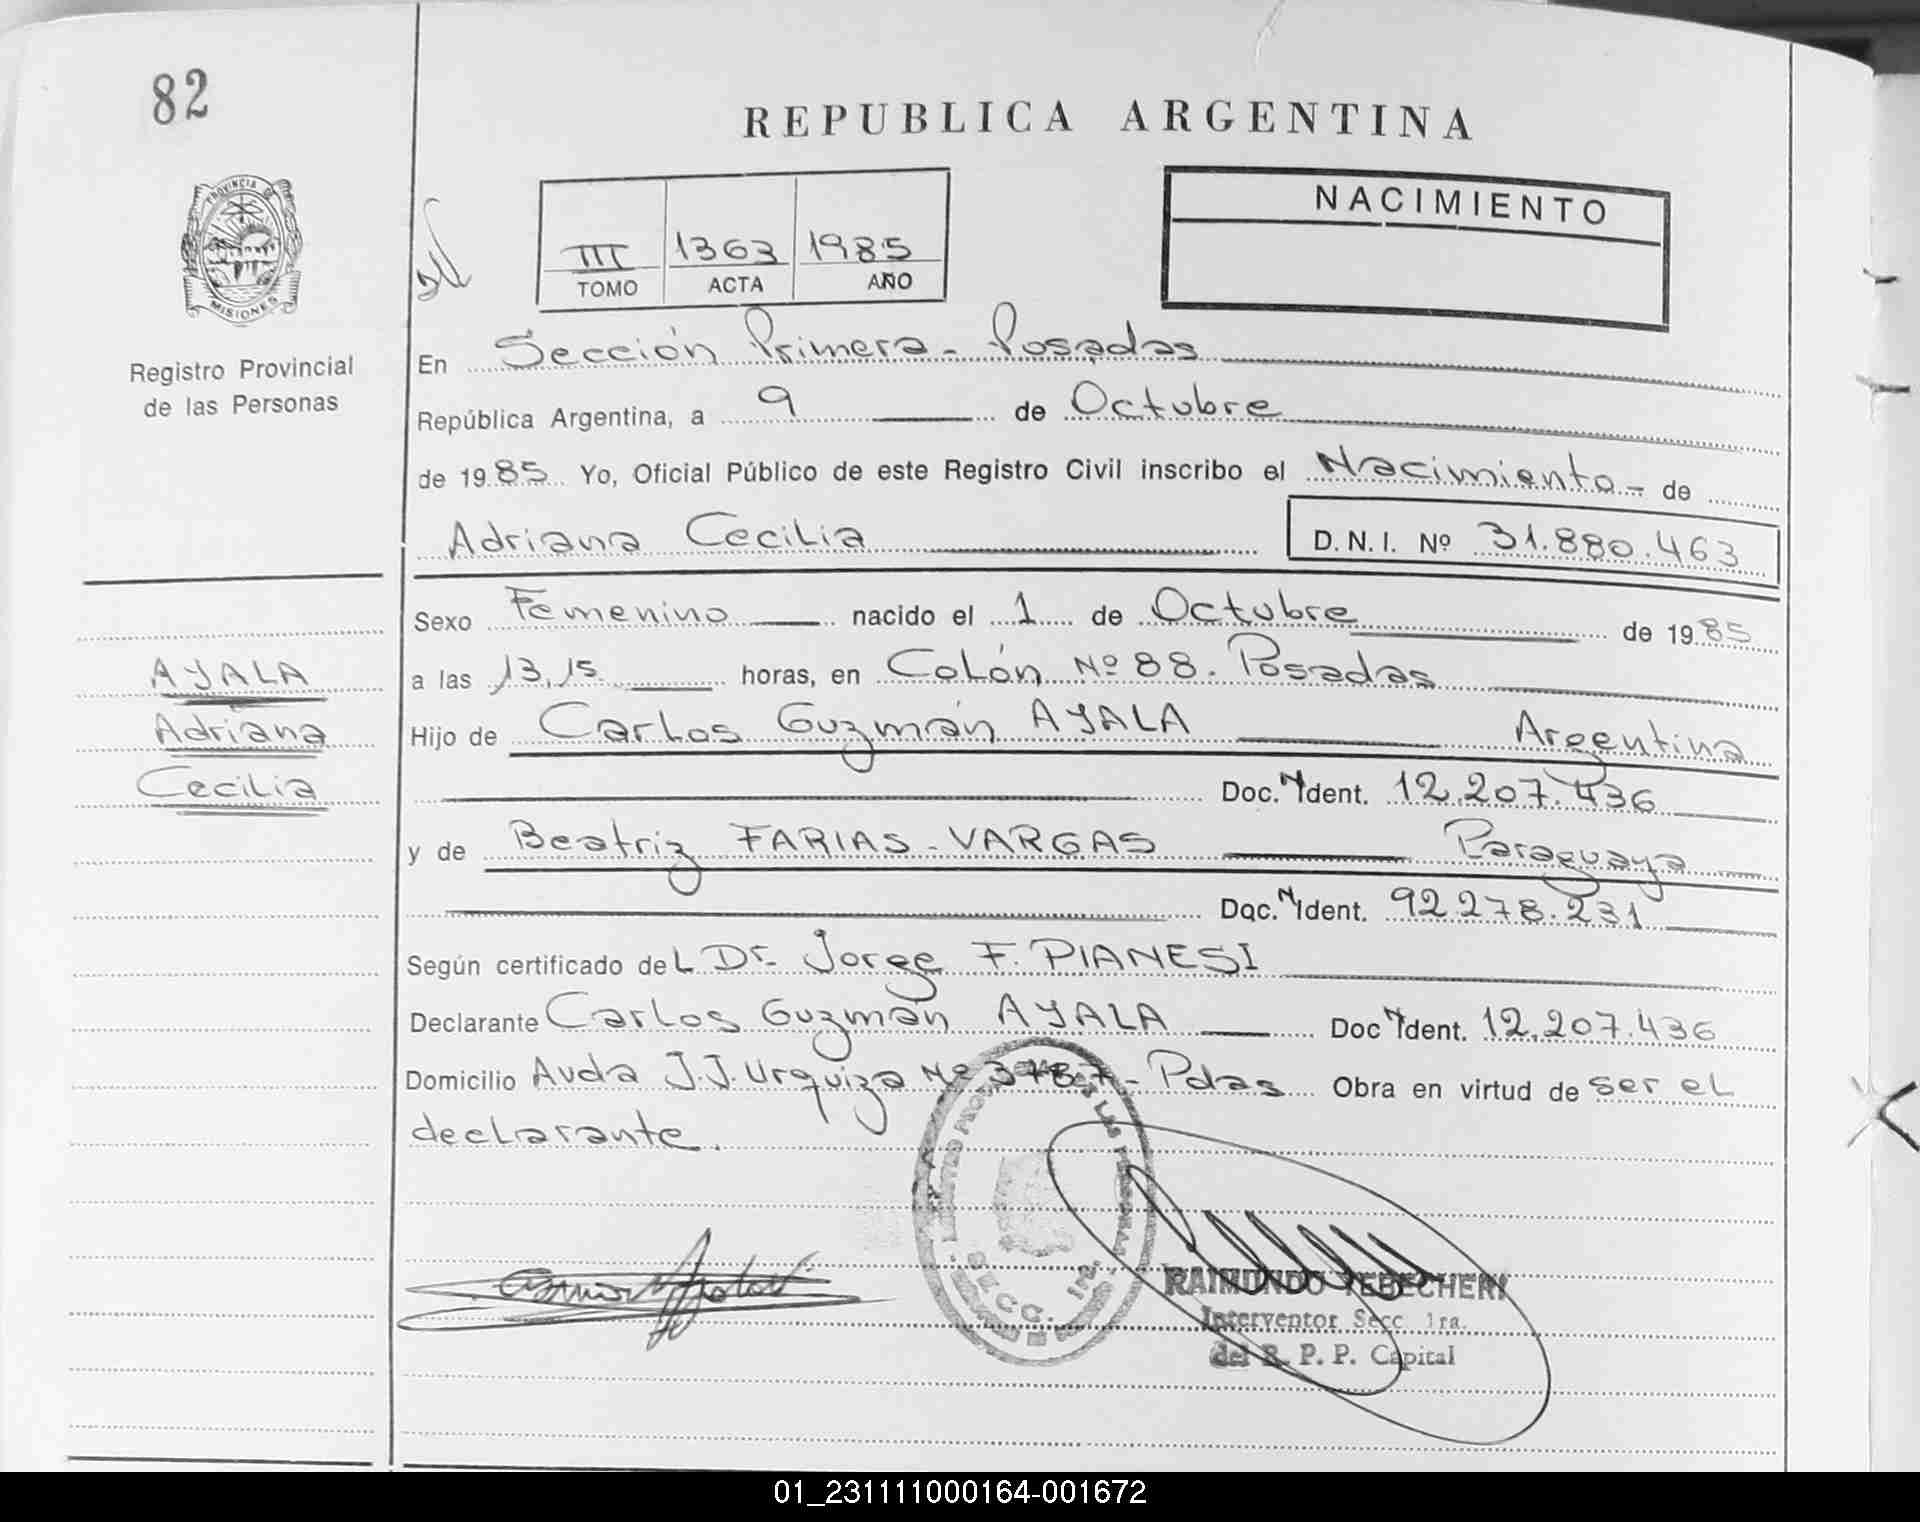 82
REPUBLICA ARGENTINA
PROVINCIA DE
MISIONES
Registro Provincial
de las Personas
III 1363 1985
TOMO ACTA AÑO
NACIMIENTO
En Sección Primera - Posadas
República Argentina, a 9 de Octubre
de 1985 Yo, Oficial Público de este Registro Civil inscribo el Nacimiento - de
Adriana Cecilia D.N.I. Nº 31.880.463
Sexo Femenino nacido el 1 de Octubre de 1985
a las 13,15 horas, en Colón Nº 88. Posadas
AYALA
Adriana
Cecilia
Hijo de Carlos Guzmán AYALA Argentina
Doc. N Ident. 12.207.436
y de Beatriz FARIAS - VARGAS Paraguaya
Doc. N Ident. 92.278.231
Según certificado del Dr. Jorge F. PIANESI
Declarante Carlos Guzmán AYALA Doc N Ident. 12.207.436
Domicilio Avda J.J. Urquiza Nº 3787 - Pdas Obra en virtud de ser el
declarante.
SECC. 1ra.
RAIMUNDO TEBECHERI
Interventor Secc 1ra.
del R. P. P. Capital
01_231111000164-001672